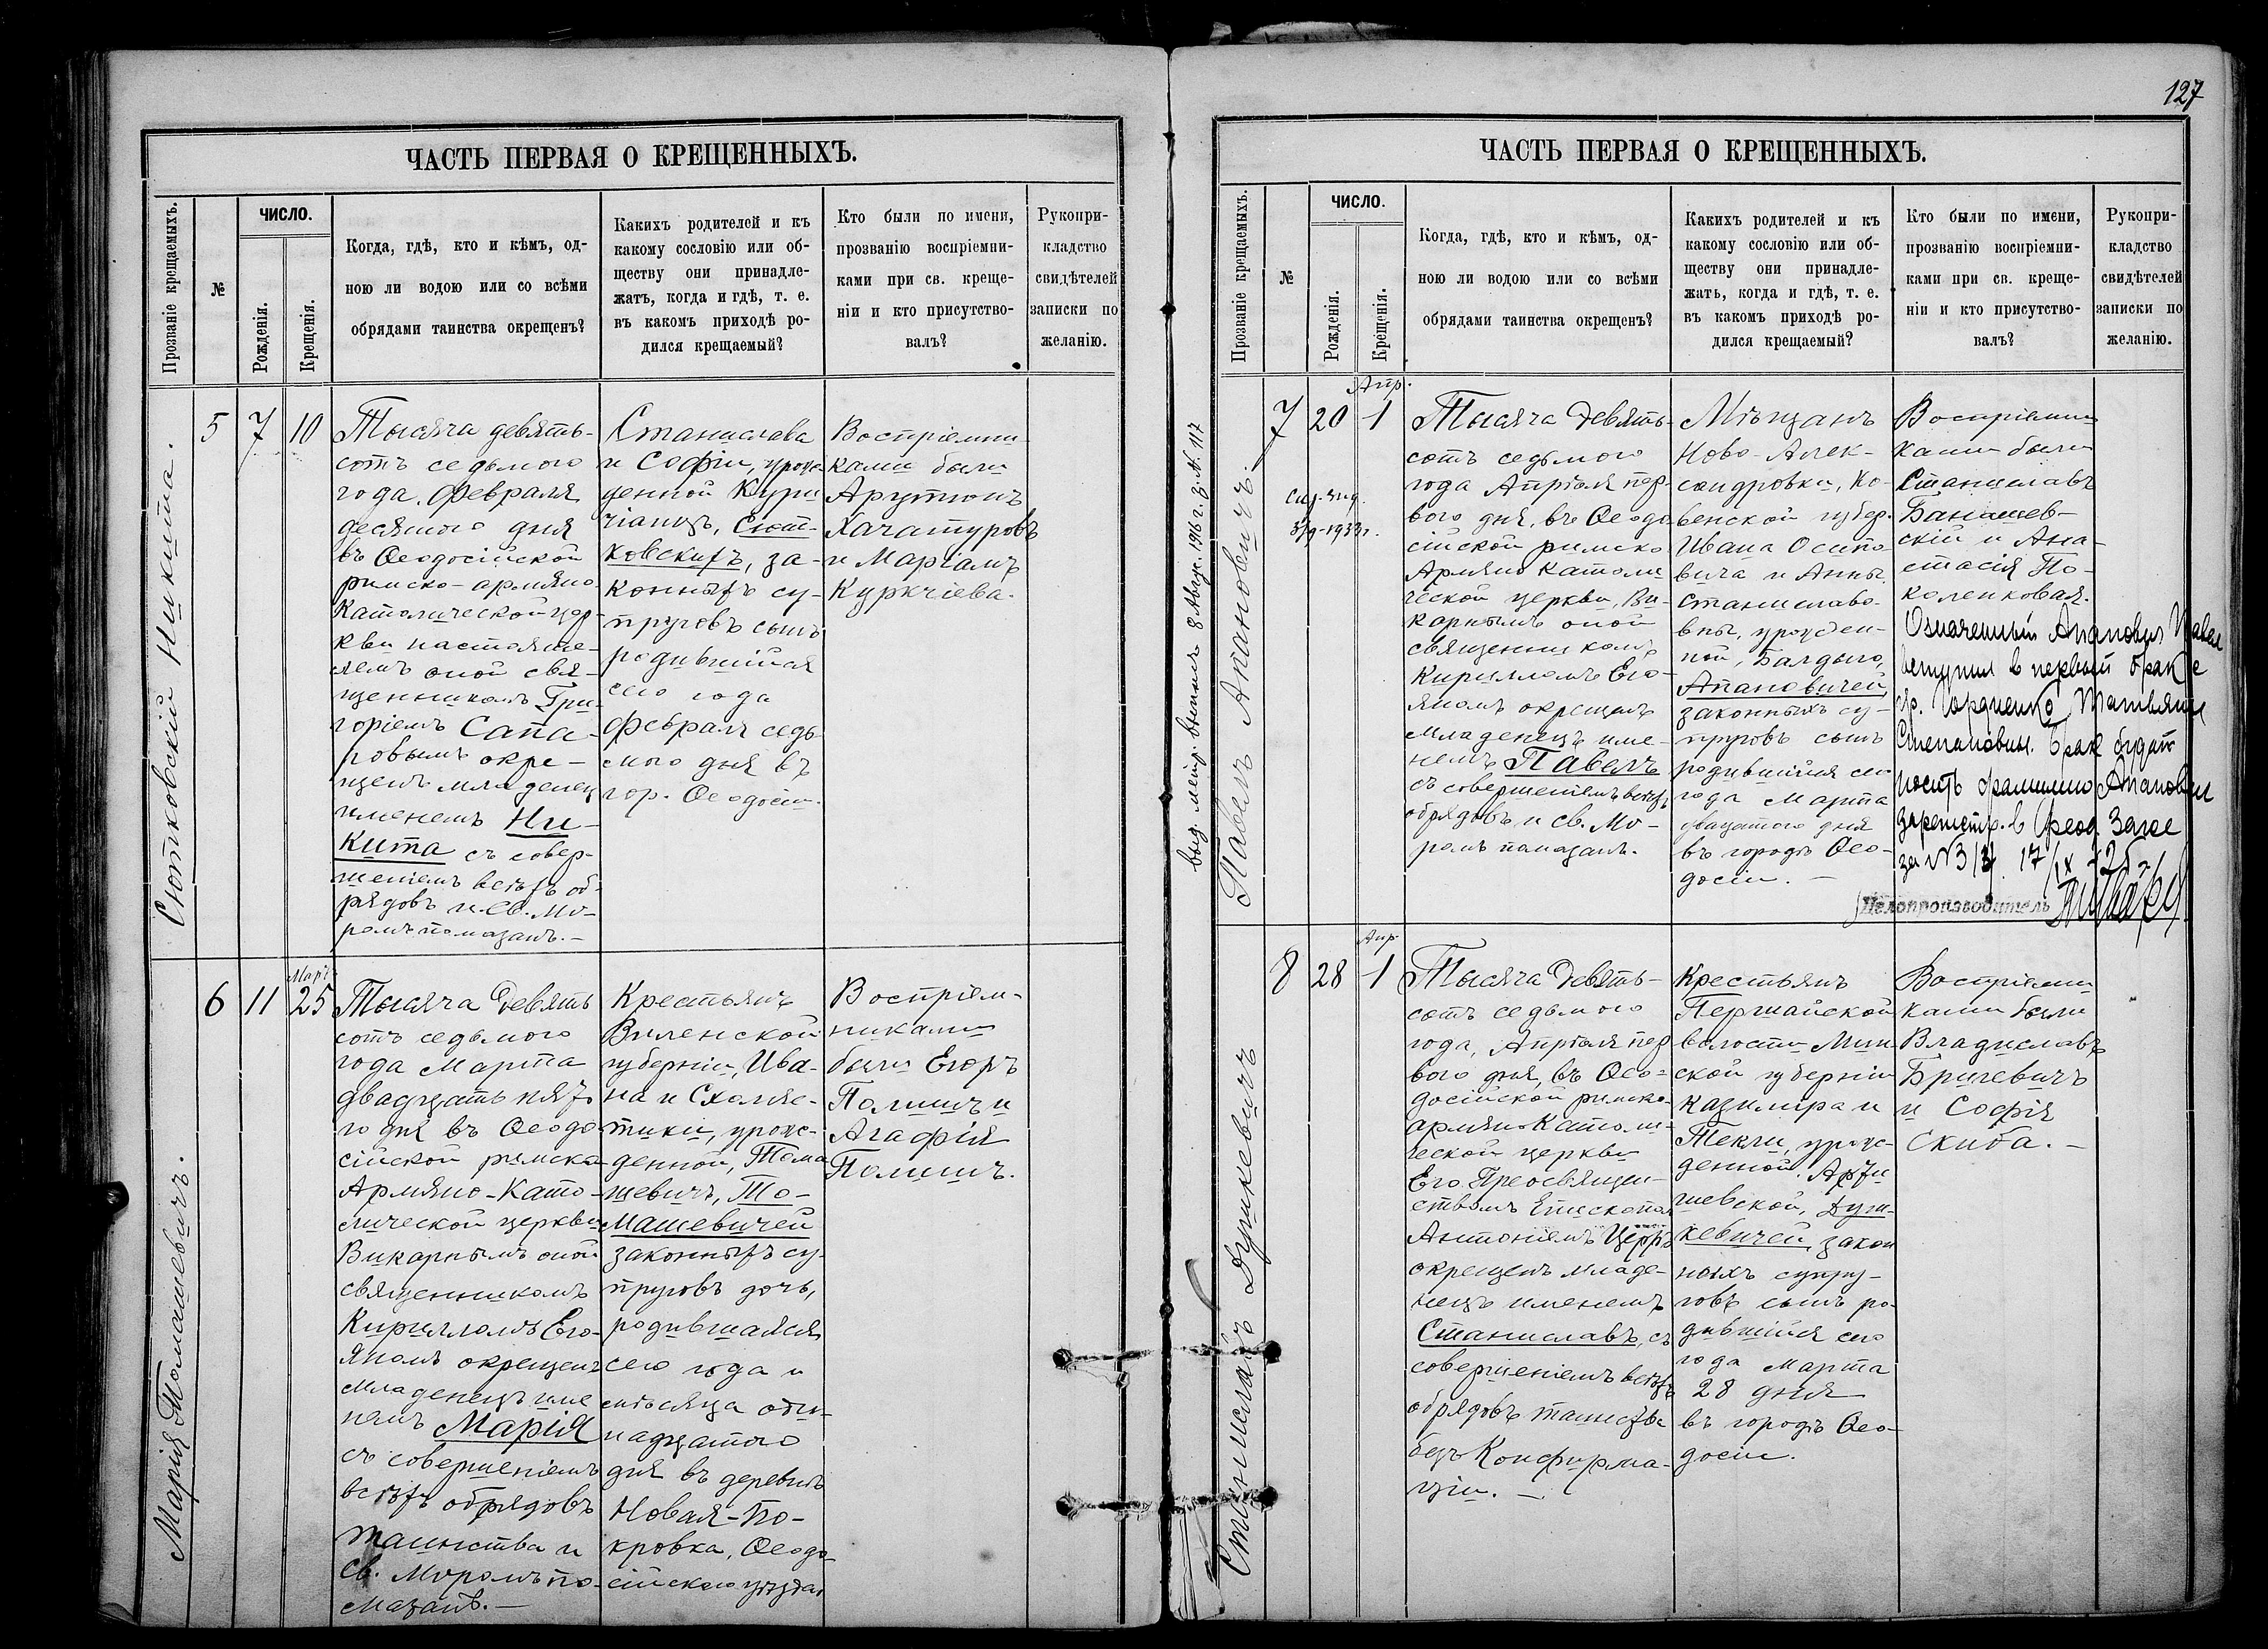 127
ЧАСТЬ ПЕРВАЯ О КРЕЩЕННЫХЪ.
Прозваніе крещаемыхъ.
№
ЧИСЛО.
Рожденія.
Крещенія.
Когда, гдѣ, кто и кѣмъ, од-
ною ли водою или со всѣми
обрядами таинства окрещенъ?
Какихъ родителей и къ
какому сословію или об-
ществу они принадле-
жатъ, когда и гдѣ, т. е.
въ какомъ приходѣ ро-
дился крещаемый?
Кто были по имени,
прозванію воспріемни-
ками при св. креще-
ніи и кто присутство-
валъ?
Рукопри-
кладство
свидѣтелей
записки по
желанію.
Сютковскій Никита.
5
7
10
Тысяча девять-
сотъ седьмого
года, февраля
десятого дня
въ Ѳеодосійской
римско-армяно
католической цер-
кви настояте-
лемъ оной свя-
щенникомъ Гри-
горіемъ Сапа-
ровымъ окре-
щенъ младенец
именемъ Ни-
кита съ совер-
шеніемъ всѣхъ об-
рядовъ и св. Мѵ-
ромъ помазанъ.-
Станислава
и Софіи, урож
денной Кури
чіанцъ, Сют-
ковскихъ, за-
конныхъ су-
пруговъ сынъ
родившійся
сего года
февраля седь
мого дня въ
гор. Ѳеодосіи.
Воспріемни-
ками были
Арутюнъ
Хачатуровъ
и Маріамъ
Куркчіева.
Марія Томашевичъ.
6
11
Март
25
Тысяча девять
сотъ седьмого
года Марта
двадцать пято
го дня въ Ѳеодо
сійской римско
Армяно-Като-
лической церкви
Викарнымъ оной
священникомъ
Кирилломъ Его-
яномъ окрещенъ
младенецъ име
немъ Марія
съ совершеніемъ
всѣхъ обрядовъ
таинства и
св. Мѵромъ по-
мазанъ.-
Крестьянъ
Виленской
губерніи, Ива-
на и Схоляс-
тики, урож-
денной, Тома
шевичъ, То-
машевичей
законныхъ су-
пруговъ дочь,
родившаяся
сего года и
мѣсяца оди-
надцатого
дня въ деревнѣ
Новая-По-
кровка, Ѳеодо-
сійского уѣзда.
Воспріем-
никами
были Егоръ
Полишъ и
Агафія
Полишъ.
ЧАСТЬ ПЕРВАЯ О КРЕЩЕННЫХЪ.
Прозваніе крещаемыхъ.
№
ЧИСЛО.
Рожденія.
Крещенія.
Когда, гдѣ, кто и кѣмъ, од-
ною ли водою или со всѣми
обрядами таинства окрещенъ?
Какихъ родителей и къ
какому сословію или об-
ществу они принадле-
жатъ, когда и гдѣ, т. е.
въ какомъ приходѣ ро-
дился крещаемый?
Кто были по имени,
прозванію воспріемни-
ками при св. креще-
ніи и кто присутство-
валъ?
Рукопри-
кладство
свидѣтелей
записки по
желанію.
выд. метр. выпись 8 Авг. 1916 г. з. № 117
Павелъ Апановичъ.
7
20
Апр.
1
Тысяча девять-
сотъ седьмого
года Апрѣля пер-
вого дня, въ Ѳеодо
сійской римско
Армяно католи
ческой церкви, Ви-
карнымъ оной
священникомъ
Кирилломъ Его-
яномъ окрещенъ
младенецъ име-
немъ Павелъ
съ совершеніемъ всѣхъ
обрядовъ и св. Мѵ-
ромъ помазанъ.
Мѣщанъ
Ново-Алек-
сандровки, Ко-
венской губер.
Ивана Осипо
вича и Анны
Станиславо-
вны, урожден-
ной, Балдыго,
Апановичей,
законныхъ су-
пруговъ сынъ
родившійся сего
года Марта
двацатого дня
въ городѣ Ѳео-
досіи.-
Воспріемни
ками были
Станиславъ
Банашев-
скій и Ана-
стасія По-
коленковая.
Означенный Апанович Павел
вступил в первый брак с
гр. Гордиенко Татьяной
Степановн. брак будут
носить фамилию Апанович
зарегистр. в Феод. Загсе
за №3 17/IX-
Делопроизводитель
8
28
Апр
1
Станиславъ Душкевичъ
Тысяча девять-
сотъ седьмого
года, Апрѣля пер
вого дня, въ Ѳео-
досійской римско-
армяно-Католи-
ческой церкви
Его Преосвящен-
ствомъ Епископом
Антоніемъ Церръ
окрещенъ младе-
нецъ именемъ
Станиславъ, съ
совершеніемъ всѣхъ
обрядовъ таинства
безъ Конфирма-
ціи.-
Крестьянъ
Першайской
волости Мин-
ской губерніи
Казиміра и
Текли, урож-
денной. Арци
шевской, Душ-
кевичей, закон
ныхъ супру-
говъ сынъ ро-
дившійся сего
года Марта
28 дня
въ городѣ Ѳео-
досіи.
Воспріемни
ками были
Владиславъ
Бригевичъ
и Софія
Скиба.-